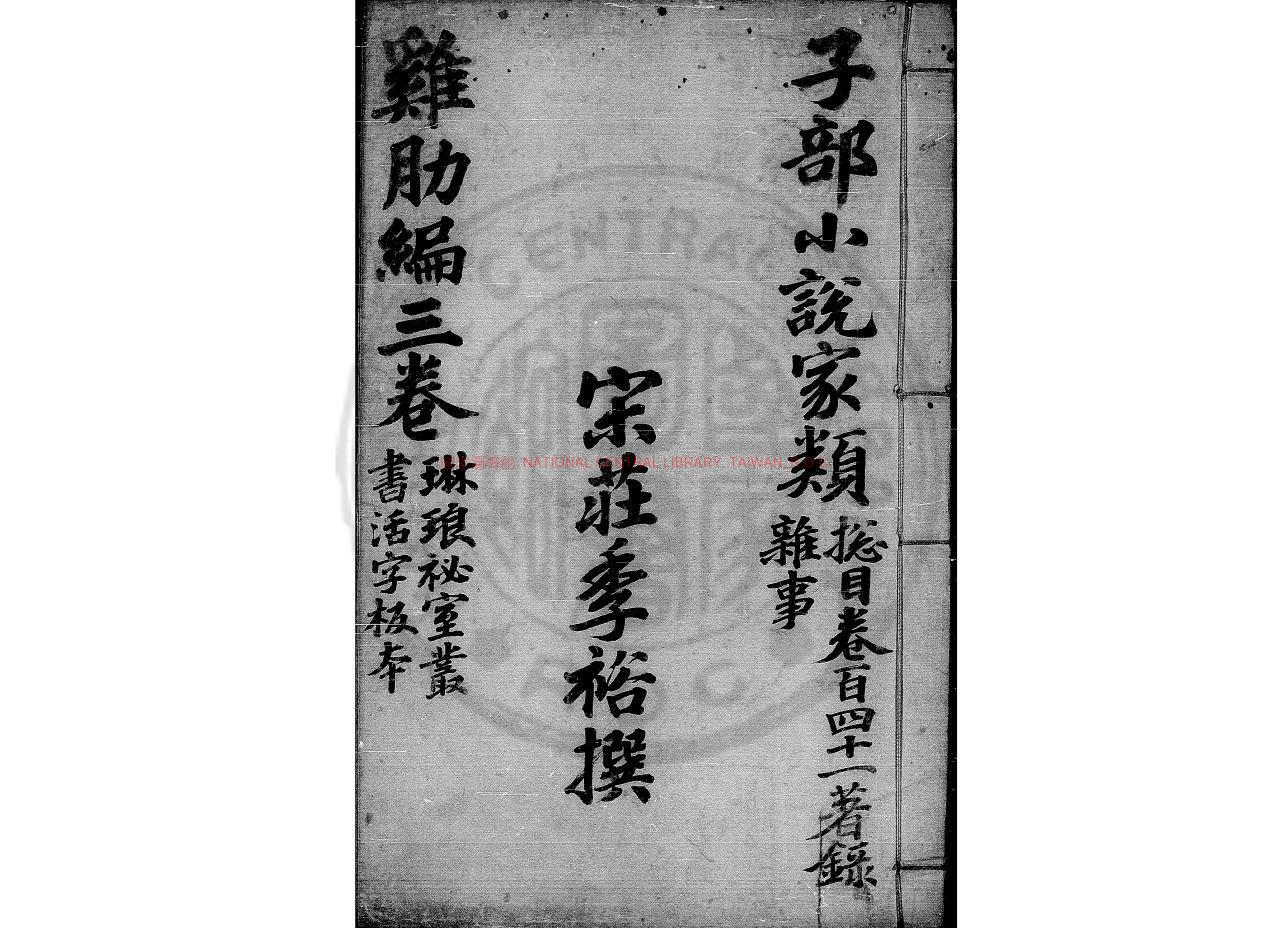 子部小說家類
揔目卷百四十一著錄
雜事
宋莊季裕撰
雞肋編三卷
琳琅祕室叢
書活字板本
CENTRAL
NATIONAL CENTRAL LIBRARY, TAIWAN